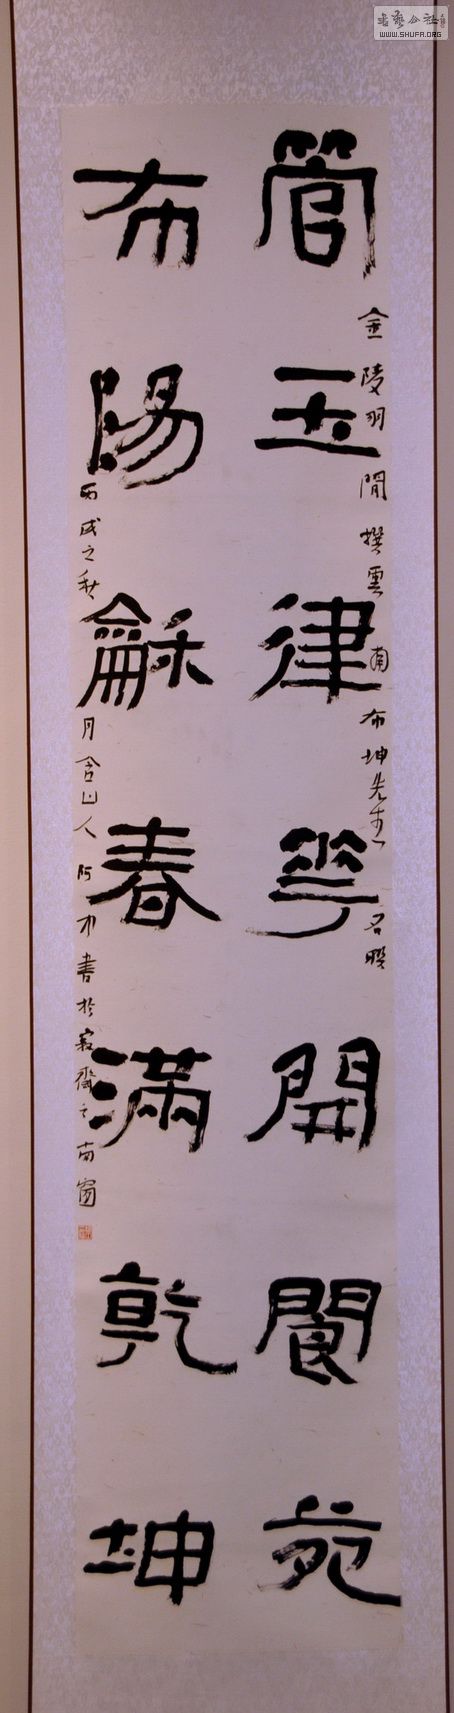 管玉律花開閬苑
金陵羽閒撰雲南布坤先生名聯
布陽龢春滿乾坤
丙戌之秋月含山人阿才書於寂齋之南窗
書藝公社
WWW.SHUFA.ORG